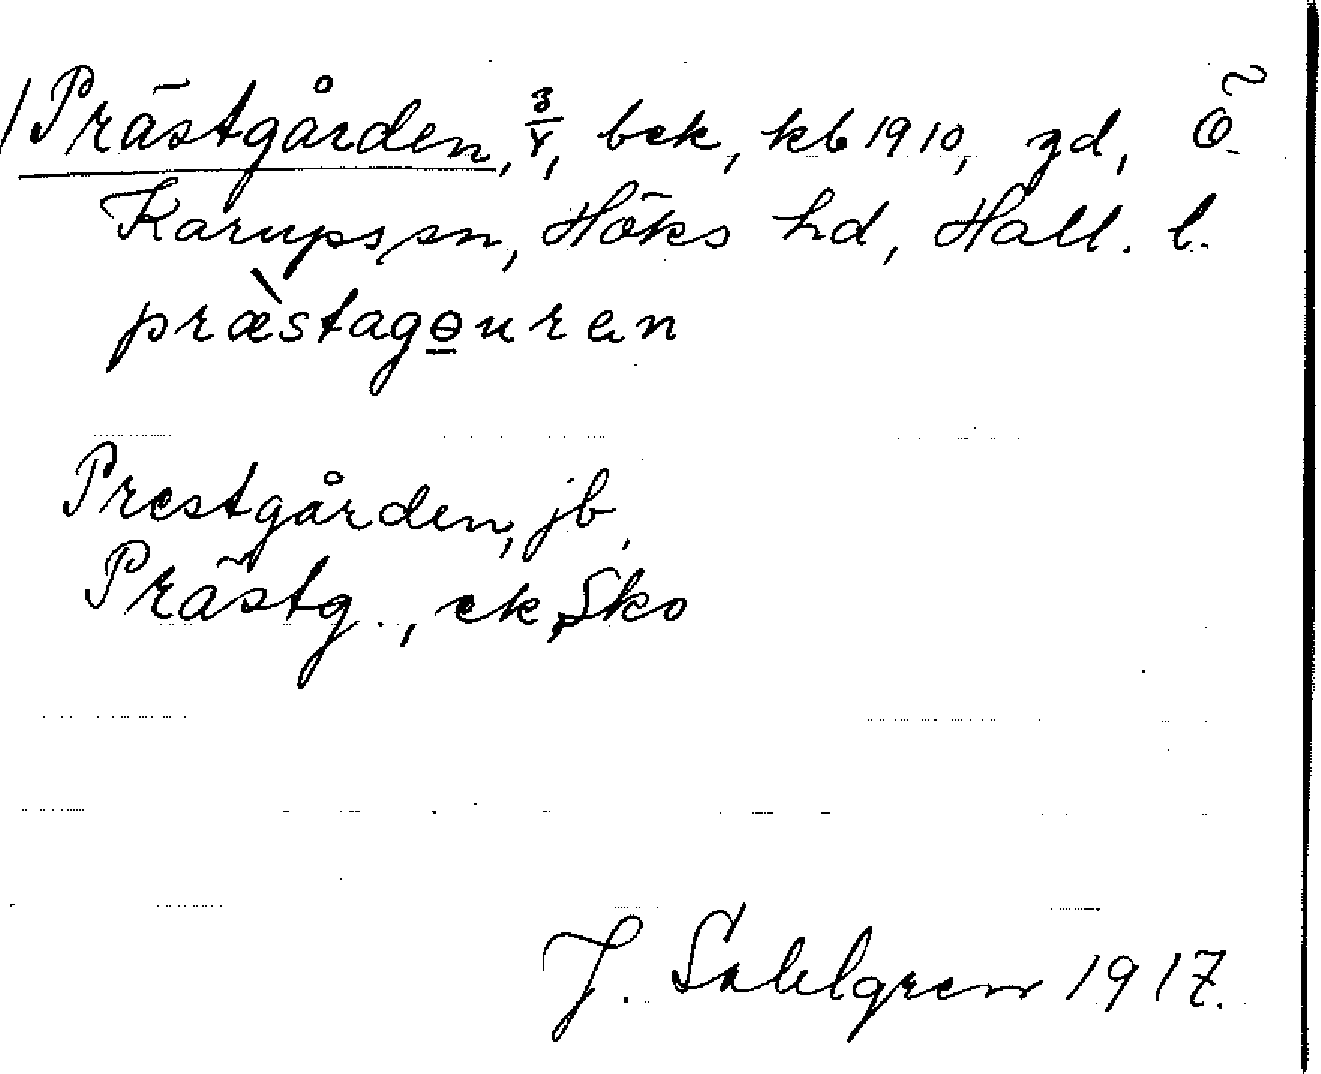 /Prästgården, 3/4, bek, kb 1910, gd, Ö.
Karups sn, Höks hd, Hall. l.
præ̀stago̲uren
Prestgården, jb,
Prästg., ek, Sko
J. Sahlgren 1917.